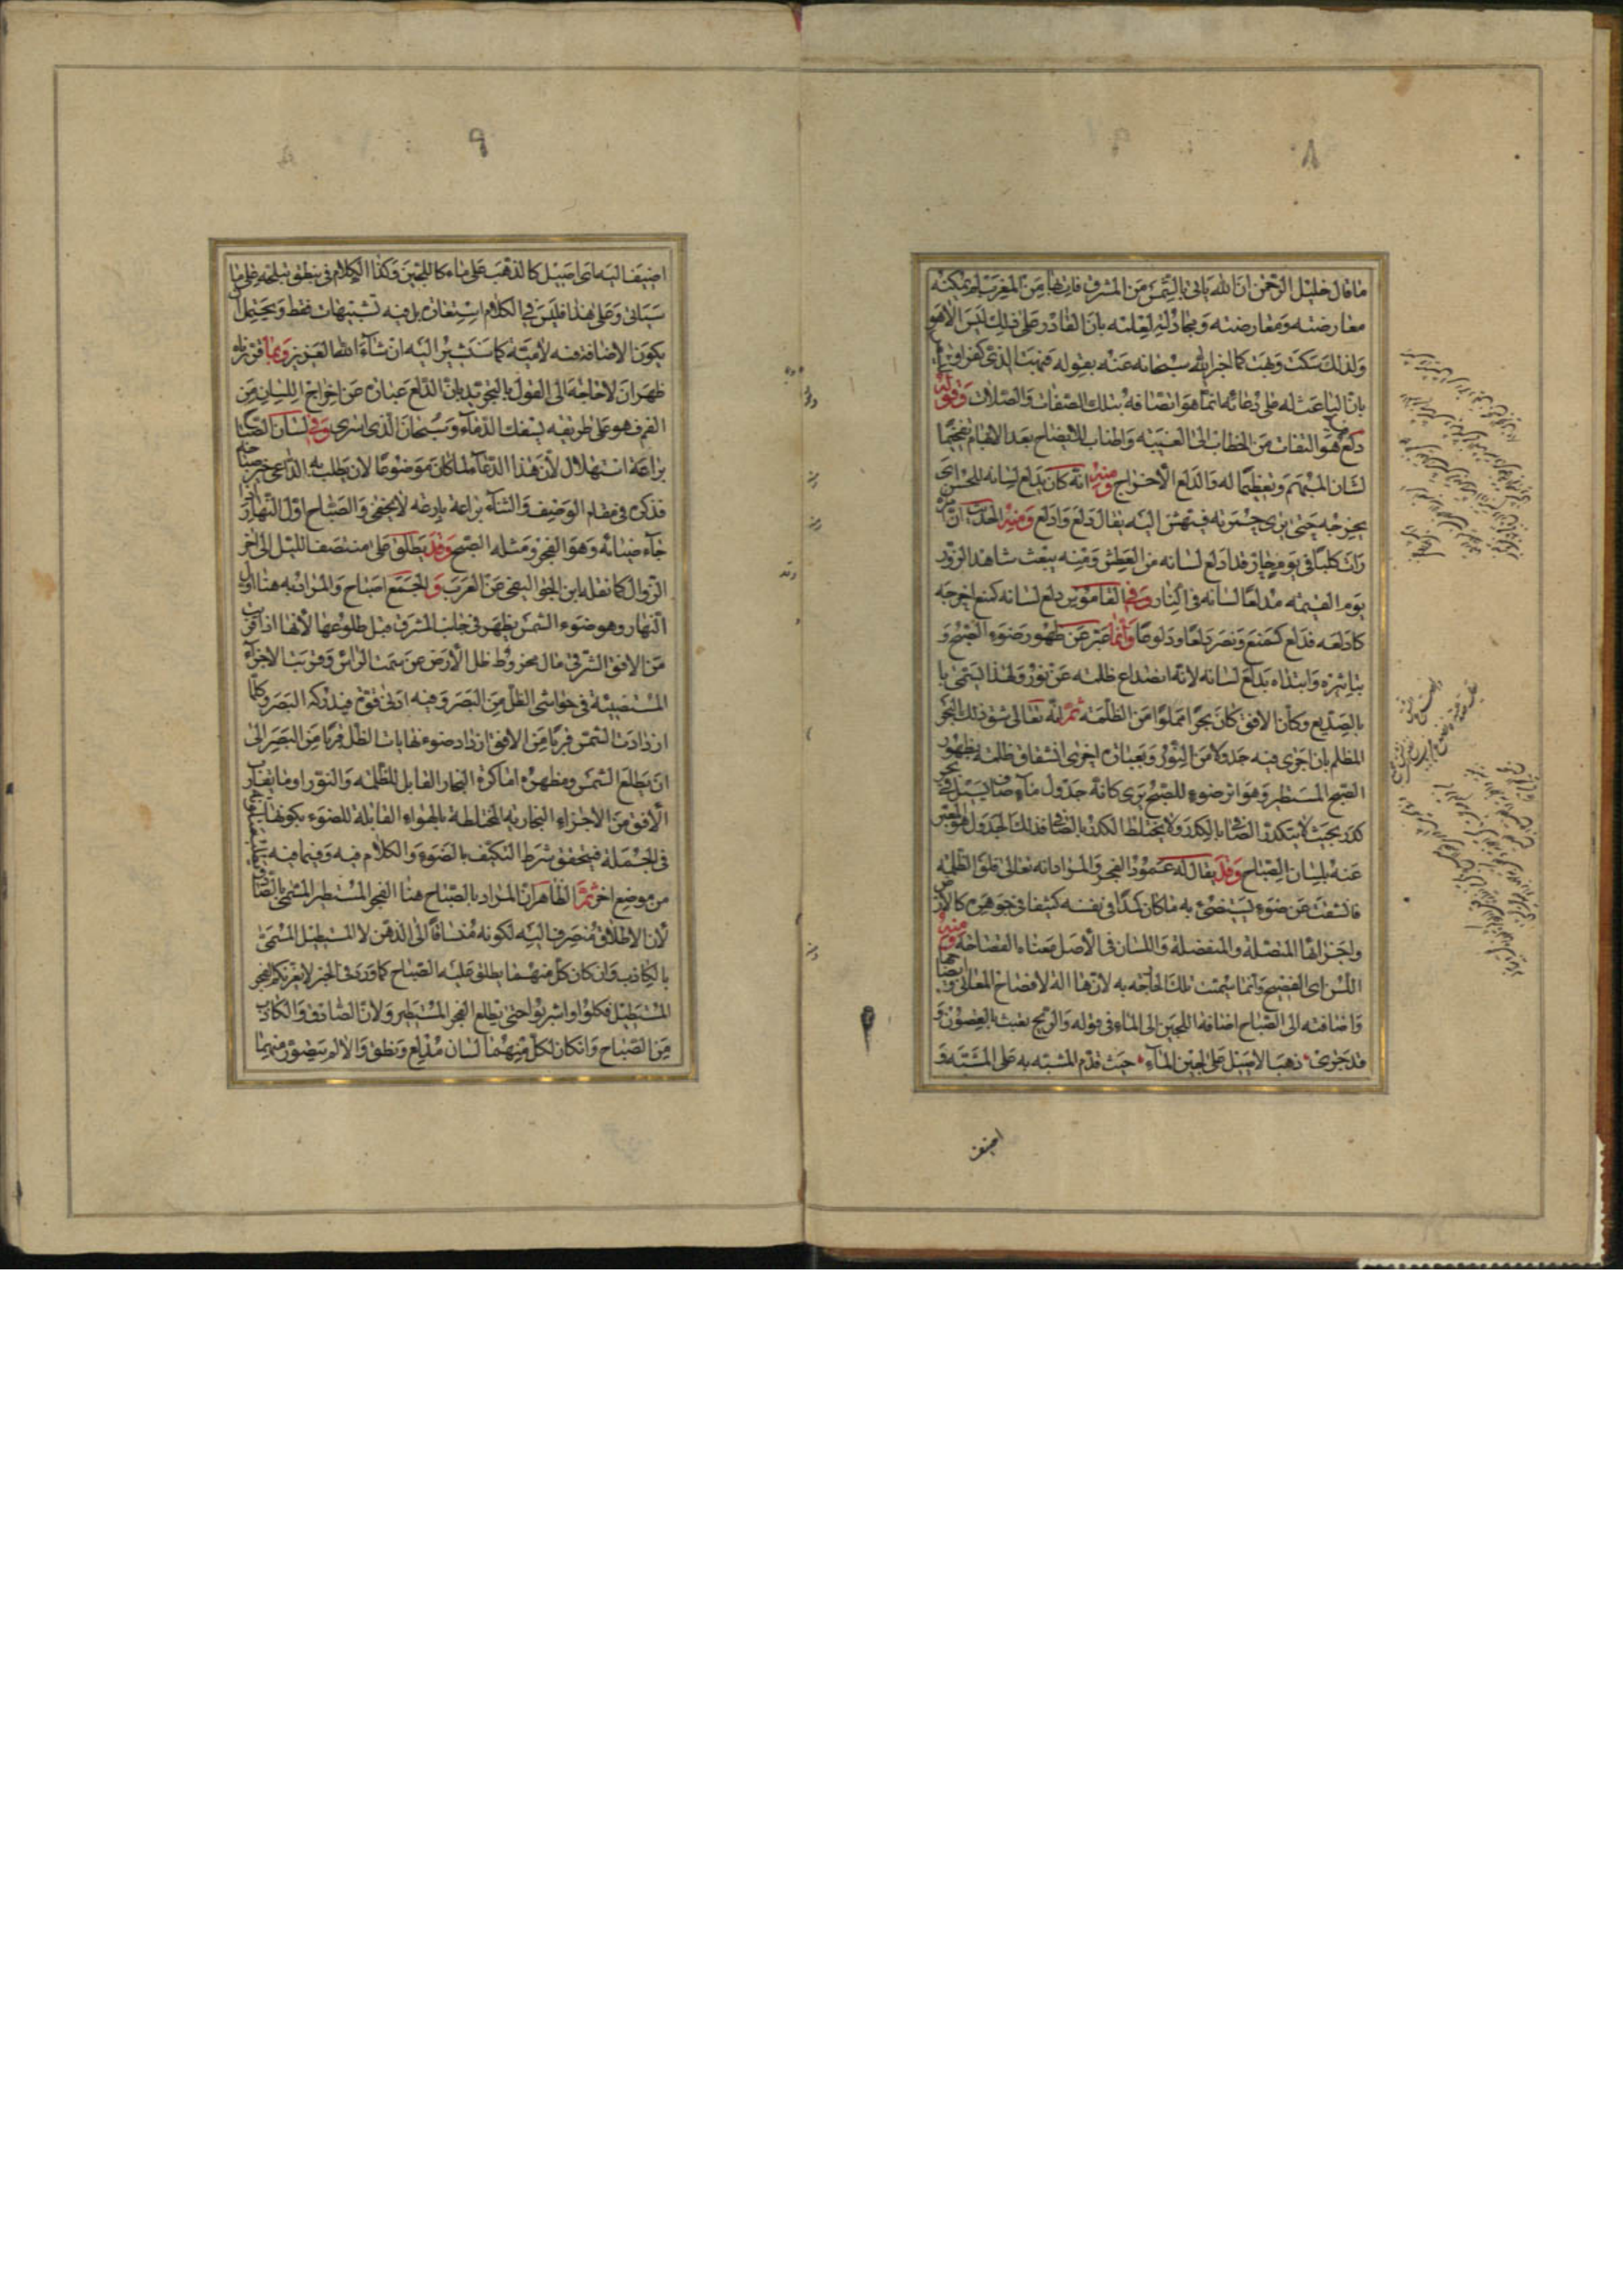 ٨
ما قال خليل الرحمن ان الله ياتى بالشمس من المشرق فات بها من المغرب لم يمكنه
معارضته ومعارضته ومجادلته لعلمه بان القادر على ذلك ليس الا هو
ولذلك سكت وبهت كما اخبر الله سبحانه عنه بقوله فبهت الذى كفر
بان الباعث له على دعائه انما هو اتصافه بتلك الصفات والصلات وقوله
دلع هو التفات من الخطاب الى الغيبة واطناب للايضاح بعد الابهام تفخيما
لشان المبهم وتعظيما له والدلع الاخراج ومنه انه كان يدلع لسانه للحسن اى
يخرجه حتى يرى حمرته فيهش اليه يقال دلع وادلع ومنه الحديث ان
رات كلبا فى يوم حار قد ادلع لسانه من العطش ومنه يبعث شاهد الزور
يوم القيمة مدلعا لسانه فى النار وفى القاموس دلع لسانه كمنع اخرجه
كادلعه فدلع كمنع ونصر دلعا ودلوعا وانما عبر عن ظهور ضوء الصبح و
تباشره وابتداه بدلع لسانه لانه انصداع ظلمة عن نور ولهذا يسمى
بالصديع وكان الافق كان بحرا مملوا من الظلمة ثم انه تعالى شق ذلك البحر
المظلم بان اجرى فيه جدولا من النور وبعبارة اخرى انشقاق ظلمة بظهور
الصبح المستطير وهو اثر ضوء للصبح يرى كانه جدول ماء صاف يسيل فى بحر
كدر بحيث لا يتكدر الصافى بالكدر ولا يختلط الكدر بالصافى فذلك الجدول هو المعبر
عنه بلسان الصباح وقد يقال له عمود الفجر والمراد انه تعالى فلق الظلمة
فانشقت عن ضوء يستضئ به ما كان كمدا فى نفسه كثيفا فى جوهره كالارض
واجزائها المتصلة والمنفصلة واللسان فى الاصل بمعناه الفصاحة ومنه
اللسن اى الفصيح وانما سميت تلك الجارحة به لانها الة لافصاح المعانى
واضافته الى الصباح اضافة اللجين الى الماء فى قوله والريح تعبث بالغصون و
قد جرى ذهب الاصيل على لجين الماء حيث قدم المشبه به على المشبه و
اضيف
٩
اضيف اليه اى اصيل كالذهب على ماء كاللجين وكذا الكلام فى ينطق تبلجه على ما
سياتى وعلى هذا فليس فى الكلام استعارة بل فيه تشبيهات فقط ويحتمل ان
يكون الاضافة فيه لامية كما سنشير اليه ان شاء الله العزيز وبما قررناه
ظهر ان لا حاجة الى القول بالتجريد بان الدلع عبارة عن اخراج اللسان من
الفم فهو على طريقة يسفك الدماء وسبحان الذى اسرى وفى لسان الصباح
براعة استهلال لان هذا الدعاء لما كان موضوعا لان يطلب به الداعى خير صباحه
فذكره فى مقام الوصف والثناء براعة بارعة لا يخفى والصباح اول النهار اذا
جاء ضيائه وهو الفجر ومثله الصبح وقد يطلق على منتصف الليل الى اخر
الزوال كما نقله ابن الجواليقى عن العرب والجمع اصباح والمراد به هنا اول
النهار وهو ضوء الشمس يظهر فى جانب المشرق قبل طلوعها لانها اذا قربت
من الافق الشرقى مال مخروط ظل الارض عن سمت الراس وقربت الاجزاء
المستضيئة فى حواشى الظل من البصر وفيه ادنى قوة فيدركه البصر وكلما
ازدادت الشمس قربا من الافق ازداد ضوء نهايات الظل قربا من البصر الى
ان يطلع الشمس ومظهره اما كرة البخار القابل للظلمة والنور او ما يقارب
الافق من الاجزاء البخارية المختلطة بالهواء القابلة للضوء بكونها
فى الجملة فيتحقق شرط التكيف بالضوء والكلام فيه وفيما فيه
من موضع اخر ثم الظاهر ان المراد بالصباح هنا الفجر المستطير المسمى بالصادق
لان الاطلاق منصرف اليه لكونه منساقا الى الذهن لا المستطيل المسمى
بالكاذب وان كان كل منهما يطلق عليه الصباح كما ورد فى الخبر لا يغرنكم الفجر
المستطيل فكلوا واشربوا حتى يطلع الفجر المستطير ولان الصادق والكاذب
من الصباح وان كان لكل منهما لسان مندلع ونطق والا لم يتصور منهما